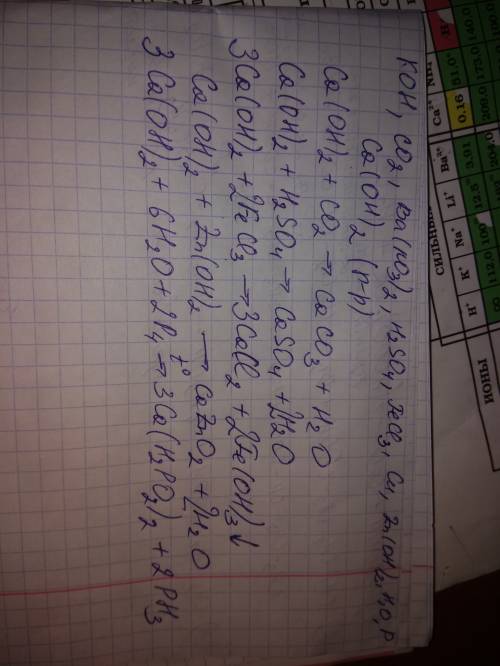 KOH, CO2, Ba(NO3)2, H2SO4, FeCl3, Cu, Zn(OH)2, H2O, P
Ca(OH)2 (р-р)
Ca(OH)2 + CO2 → CaCO3 + H2O
Ca(OH)2 + H2SO4 → CaSO4 + 2H2O
3Ca(OH)2 + 2FeCl3 → 3CaCl2 + 2Fe(OH)3↓
Ca(OH)2 + Zn(OH)2 → CaZnO2 + 2H2O
3Ca(OH)2 + 6H2O + 2P4 t° → 3Ca(H2PO2)2 + 2PH3
ИОНЫ
H+ K+ Na+ Li+ Ba2+ Ca2+
12.5 3.91 0.16
51.0 173.0 140.0